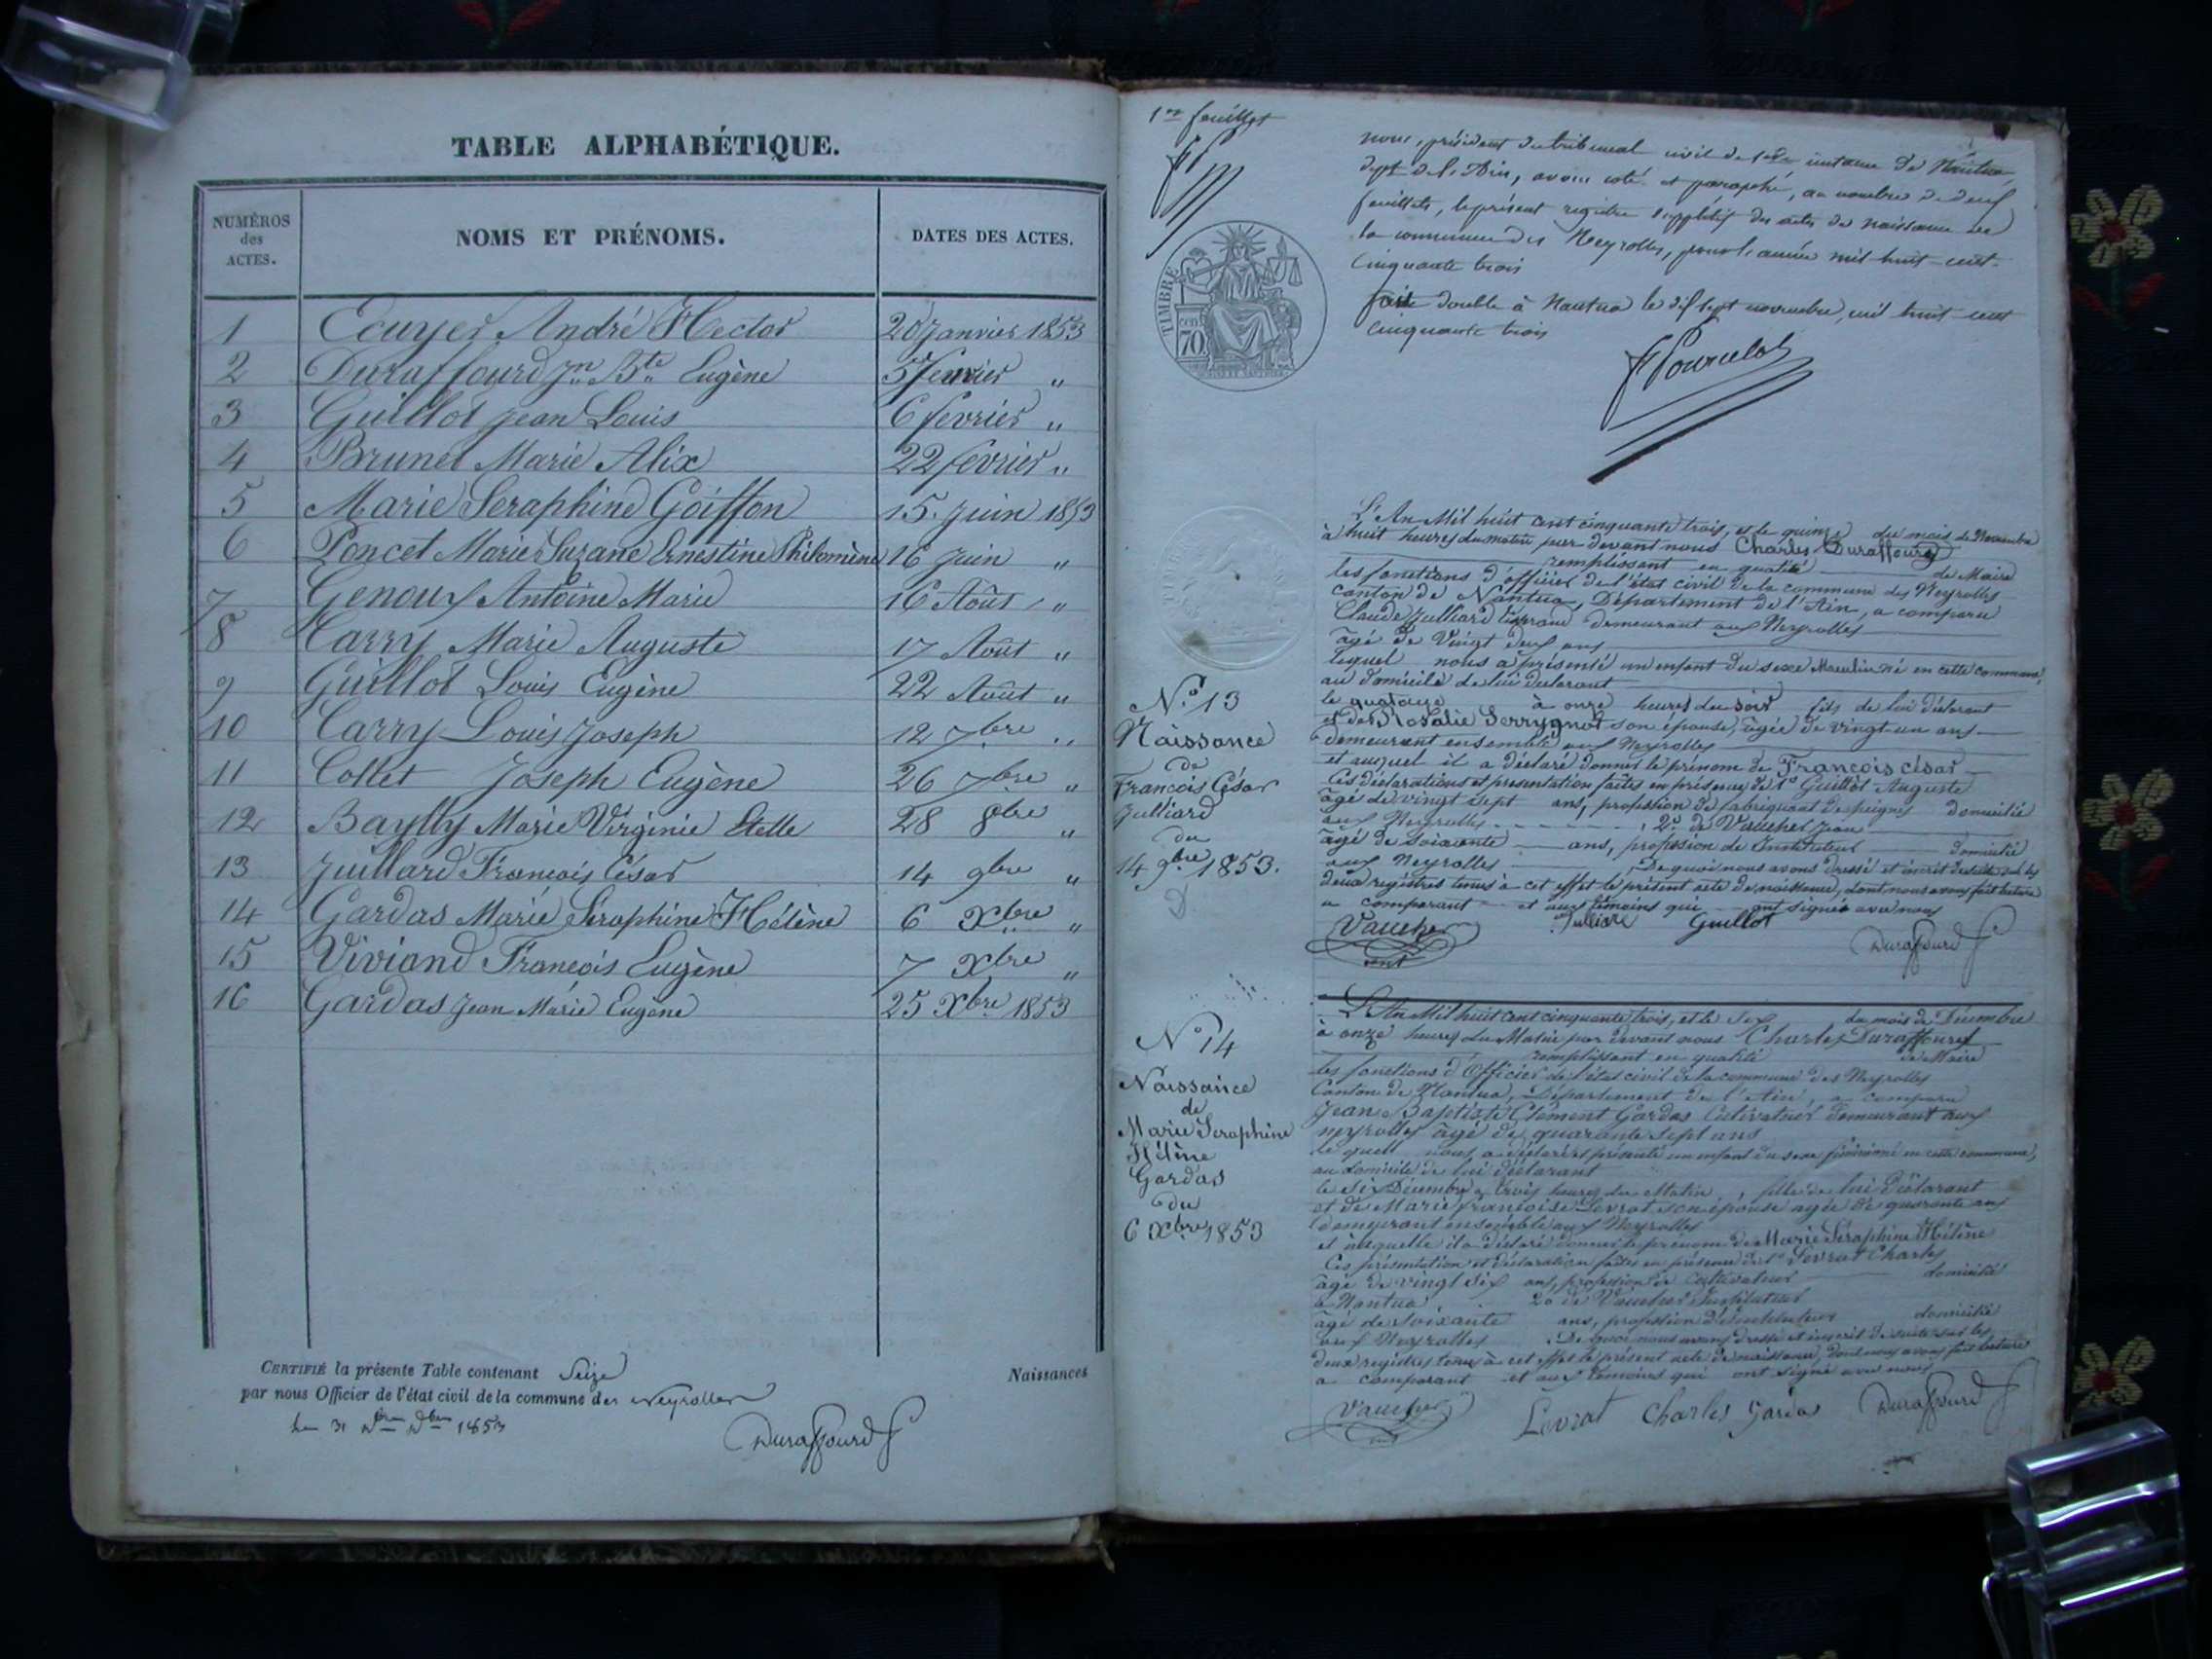 TABLE ALPHABÉTIQUE.
NUMÉROS des ACTES.
NOMS ET PRÉNOMS.
DATES DES ACTES.
1 Ecuyer André Hector 20 Janvier 1853
2 Duraffourd Jn Bte Eugène 5 fevrier "
3 Guillot Jean Louis 6 fevrier "
4 Brunet Marie Alix 22 fevrier "
5 Marie Seraphine Goiffon 15 Juin 1853
6 Poncet Marie Suzane Ernestine Philomène 16 Juin "
7 Genoux Antoine Marie 16 Août "
8 Carry Marie Auguste 17 Août "
9 Guillot Louis Eugène 22 Août "
10 Carry Louis Joseph 12 7bre "
11 Collet Joseph Eugène 26 7bre "
12 Baylly Marie Virginie Stelle 28 8bre "
13 Juillard François César 14 9bre "
14 Gardas Marie Séraphine Hélène 6 Xbre "
15 Viviand François Eugène 7 Xbre "
16 Gardas Jean Marie Eugène 25 Xbre 1853
CERTIFIÉ la présente Table contenant Seize Naissances
par nous Officier de l'état civil de la commune des Neyrolles
31 1853
Duraffourd
1er feuillet
nous, président du tribunal civil de 1ere instance de Nantua
dept de l'Ain, avons coté et paraphé, au nombre de deux
feuillets, le présent registre supplétif des actes de naissance de
la commune des Neyrolles, pour l'année mil huit cent
cinquante trois
fait double à Nantua le dix sept novembre, mil huit cent
cinquante trois
TIMBRE
70
L'An Mil huit cent cinquante trois, et le quinze du mois de Novembre
à huit heures du matin par devant nous Charles Duraffourd
remplissant en qualité de Maire
les fonctions d'officier de l'état civil de la commune des Neyrolles
canton de Nantua, Département de l'Ain, a comparu
Claude Julliard demeurant aux Neyrolles
âgé de Vingt deux ans
lequel nous a présenté un enfant du sexe Masculin né en cette commune,
au domicile de lui déclarant
le quatorze à onze heures du soir fils de lui déclarant
et de Rosalie son épouse, âgée de vingt un ans
demeurant ensemble aux Neyrolles
et auquel il a déclaré donner le prénom de François César
Ces déclarations et presentation faites en présence de 1° Guillot Auguste
âgé de vingt sept ans, profession de fabriquant de peignes domicilié
aux Neyrolles, 2° de Vaucher Jean
âgé de soixante ans, profession de Instituteur domicilié
aux Neyrolles. De quoi nous avons dressé et inscrit de suite sur les
deux registres tenus à cet effet le présent acte de naissance, dont nous avons fait lecture
au comparant et aux témoins qui ont signés avec nous
Vaucher Julliard Guillot Duraffourd
N° 13
Naissance
de
François César
Julliard
du
14 9bre 1853.
L'An Mil huit cent cinquante trois, et le Six du mois de Décembre
à onze heures du Matin par devant nous Charles Duraffourd
remplissant en qualité de Maire
les fonctions d'Officier de l'état civil de la commune des Neyrolles
Canton de Nantua, Département de l'Ain, a comparu
Jean Baptiste Clément Gardas Cultivateur demeurant aux
neyrolles âgé de quarante sept ans
le quel nous a déclaré et présenté un enfant du sexe féminin né en cette commune,
au domicile de lui déclarant
le Six Décembre à trois heures du Matin, fille de lui Déclarant
et de Marie françoise Levrat son épouse agée de quarante ans
demeurant ensemble aux Neyrolles
et à laquelle il a déclaré donner le prénom de Marie Séraphine Hélène
Ces présentation et déclaration faites en présence de 1° Levrat Charles
âgé de vingt six ans, profession de Cultivateur domicilié
à Nantua, 2° de Vaucher Instituteur
âgé de Soixante ans, profession d'Instituteur domicilié
aux Neyrolles. De quoi nous avons dressé et inscrit de suite sur les
deux registres tenus à cet effet le présent acte de naissance, dont nous avons fait lecture
au comparant et aux témoins qui ont signé avec nous
Vaucher Levrat Charles Gardas Duraffourd
N° 14
Naissance
de
Marie Seraphine
Hélène
Gardas
du
6 Xbre 1853